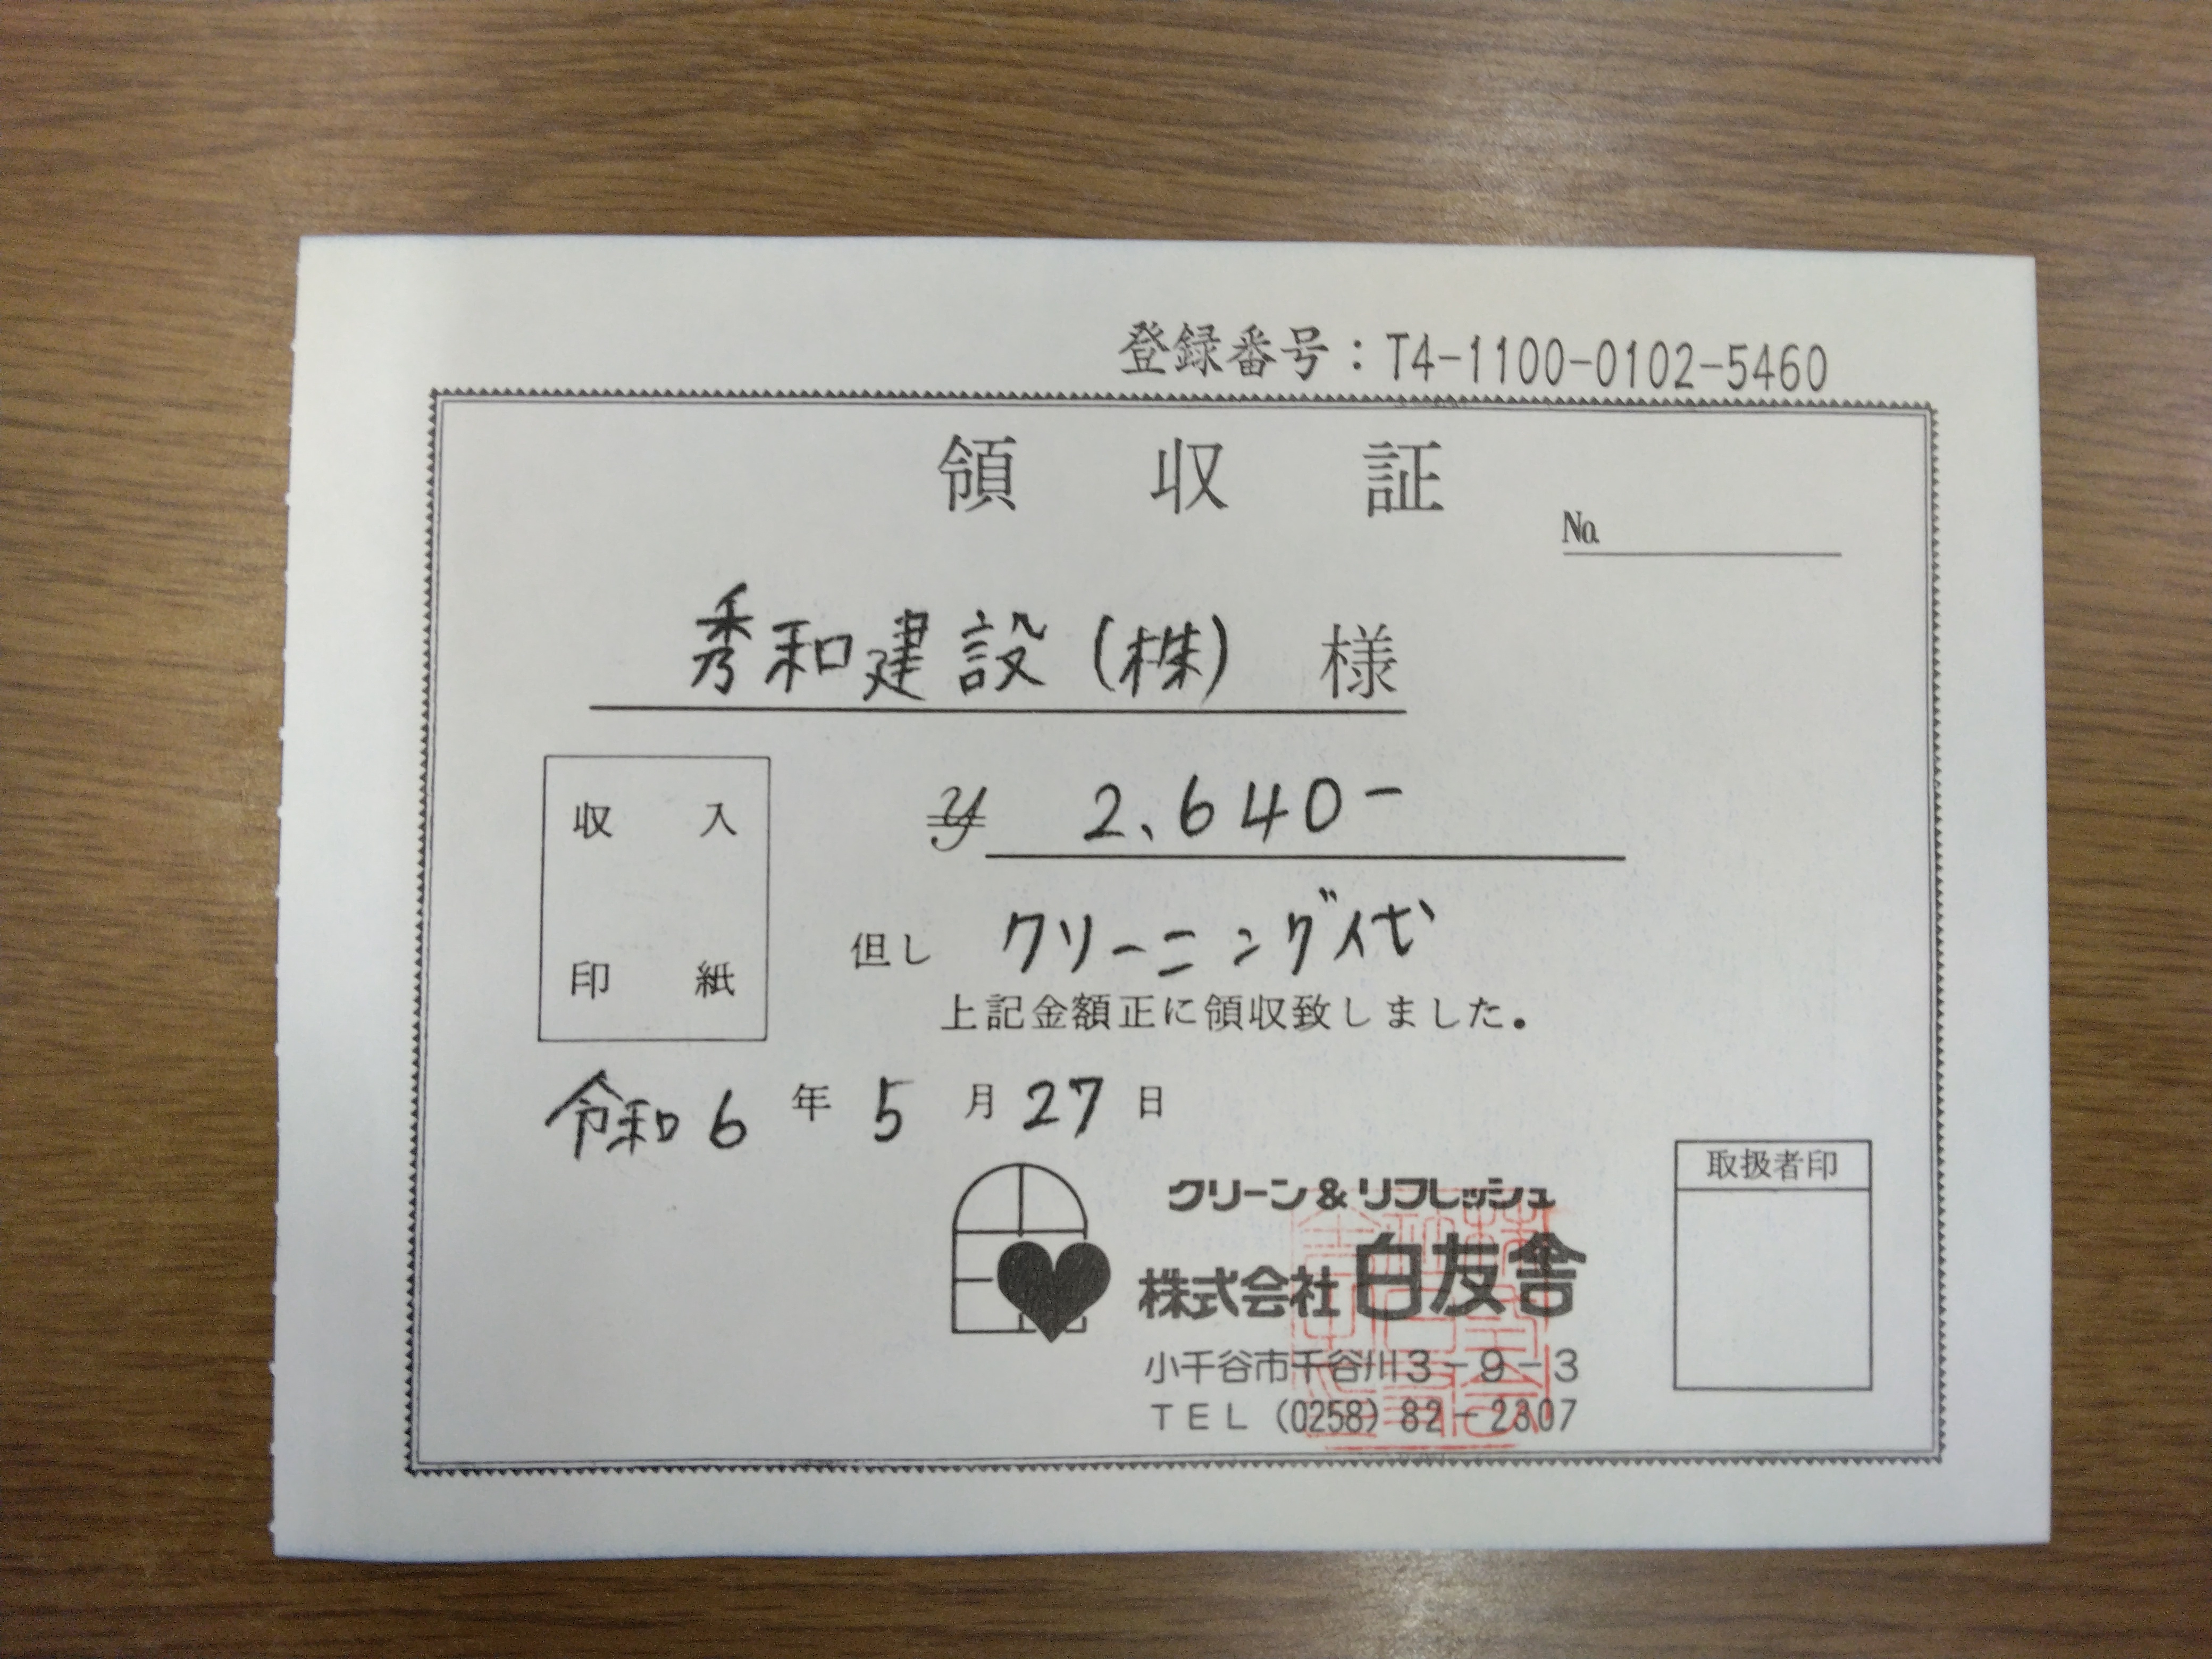 登録番号：T4-1100-0102-5460
領収証
No.
秀和建設(株) 様
¥ 2,640-
収入
印紙
但し クリーニング代
上記金額正に領収致しました。
令和6年5月27日
取扱者印
クリーン&リフレッシュ
株式会社白友舎
小千谷市千谷川3-9-3
TEL (0258) 82-2307